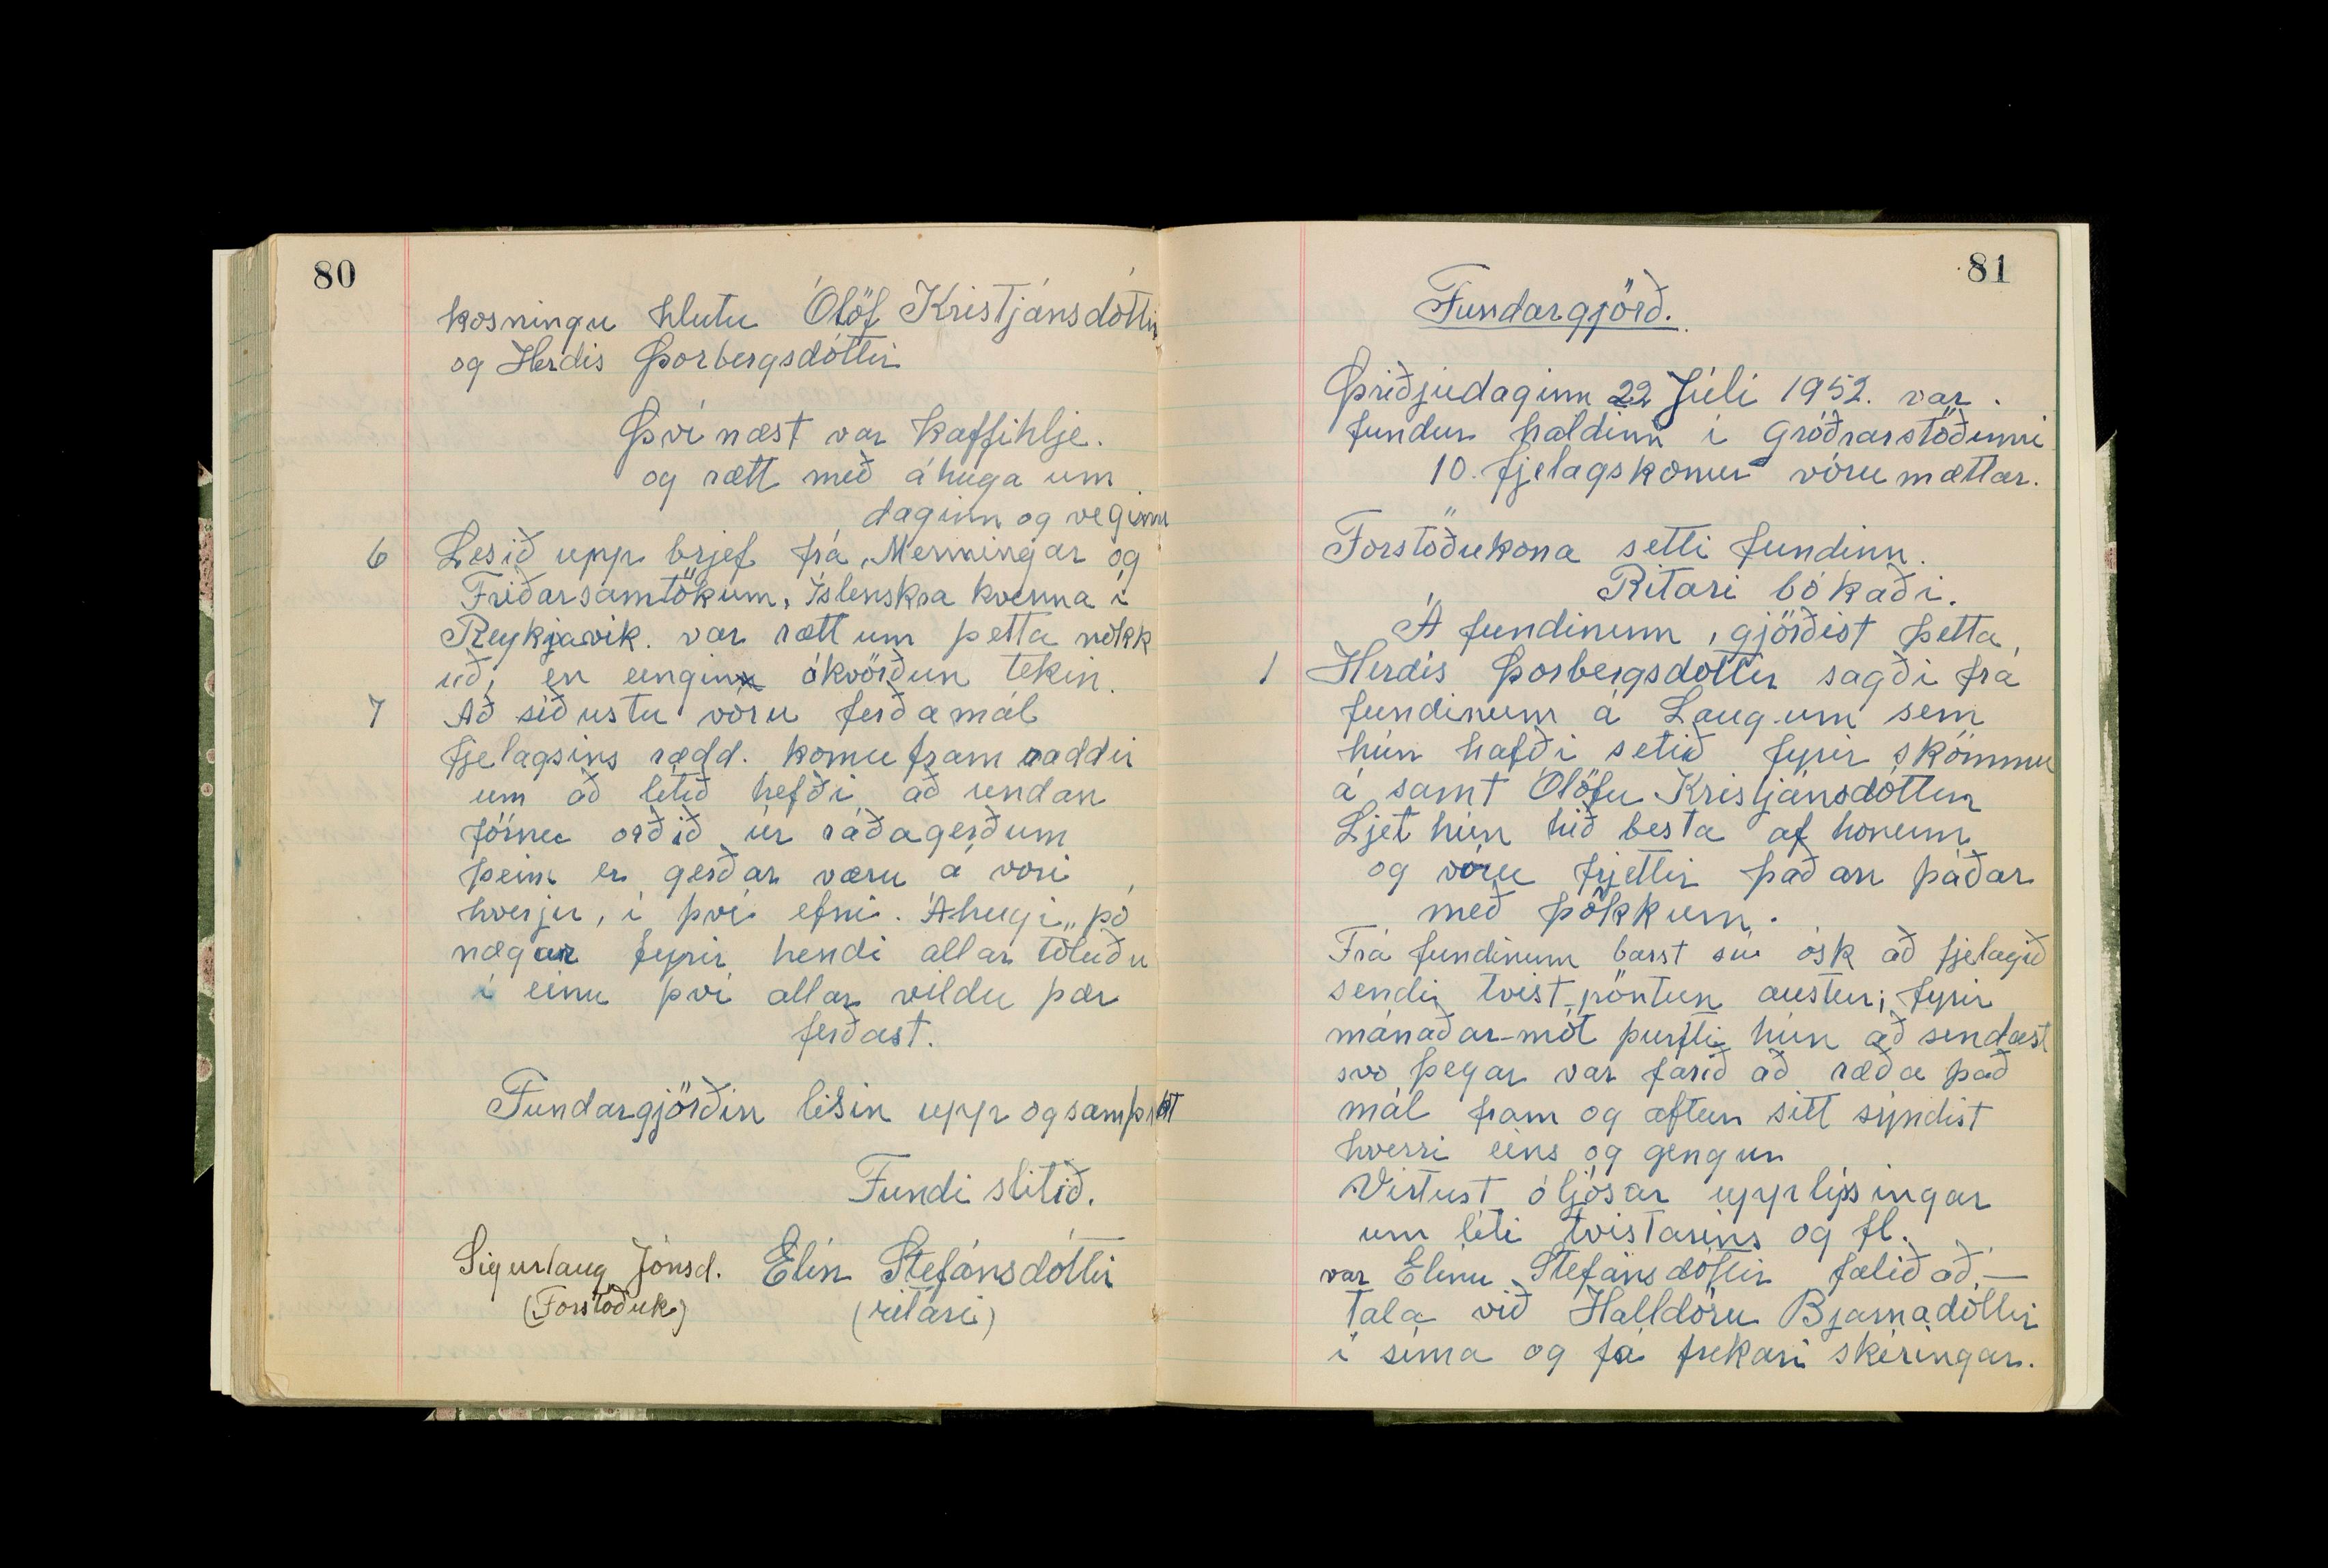 80
kosningu hlutu Ólöf Kristjánsdóttir
og Herdis Þorbergsdóttir
Því næst var kaffihlje.
og rætt með áhuga um
daginn og veginn
6 Lesið upp brjef frá, Menningar og
Friðarsamtökum, Íslenskra kvenna í
Reykjavik. var rætt um þetta nokk
uð, en eingin ákvörðun tekin.
7 Að siðustu vóru ferðamál
fjelagsins rædd. komu fram raddir
um að lítið hefði að undan
förnu orðið úr ráðagerðum
þeim er gerðar væru á vori
hverju, í því efni. Áhugi, þó
nægur fyrir hendi allar töluðu
í einu því allar vildu þær
ferðast.
Fundargjörðin lesin upp og samþykt
Fundi slitið.
Sigurlaug Jónsd. Elín Stefánsdóttir
(Forstöðuk) (ritari)
81
Fundargjörð.
Þriðjudaginn 22 Júli 1952. var.
fundur haldinn í Gróðrarstöðinni
10. fjelagskonur vóru mættar.
Forstöðukona setti fundinn.
Ritari bókaði.
Á fundinum, gjörðist þetta,
1 Herdís Þorbergsdóttir sagði frá
fundinum á Laugum sem
hún hafði setið fyrir skömmu
á samt Ólöfu Kristjánsdóttur
Ljet hún hið besta af honum
og vóru frjettir þaðan þáðar
með þökkum.
Frá fundinum barst sú ósk að fjelagið
sendi tvist-pöntun austur; fyrir
mánaðar-mót þurfti hún að sendast
svo þegar var farið að ræða það
mál fram og aftur sitt syndist
hverri eins og gengur
Virtust óljósar upplýsingar
um liti tvistarins og fl.
var Elinu Stefánsdóttir falið að, —
tala við Halldóru Bjarnadóttir
í síma og fá frekari skíringar.